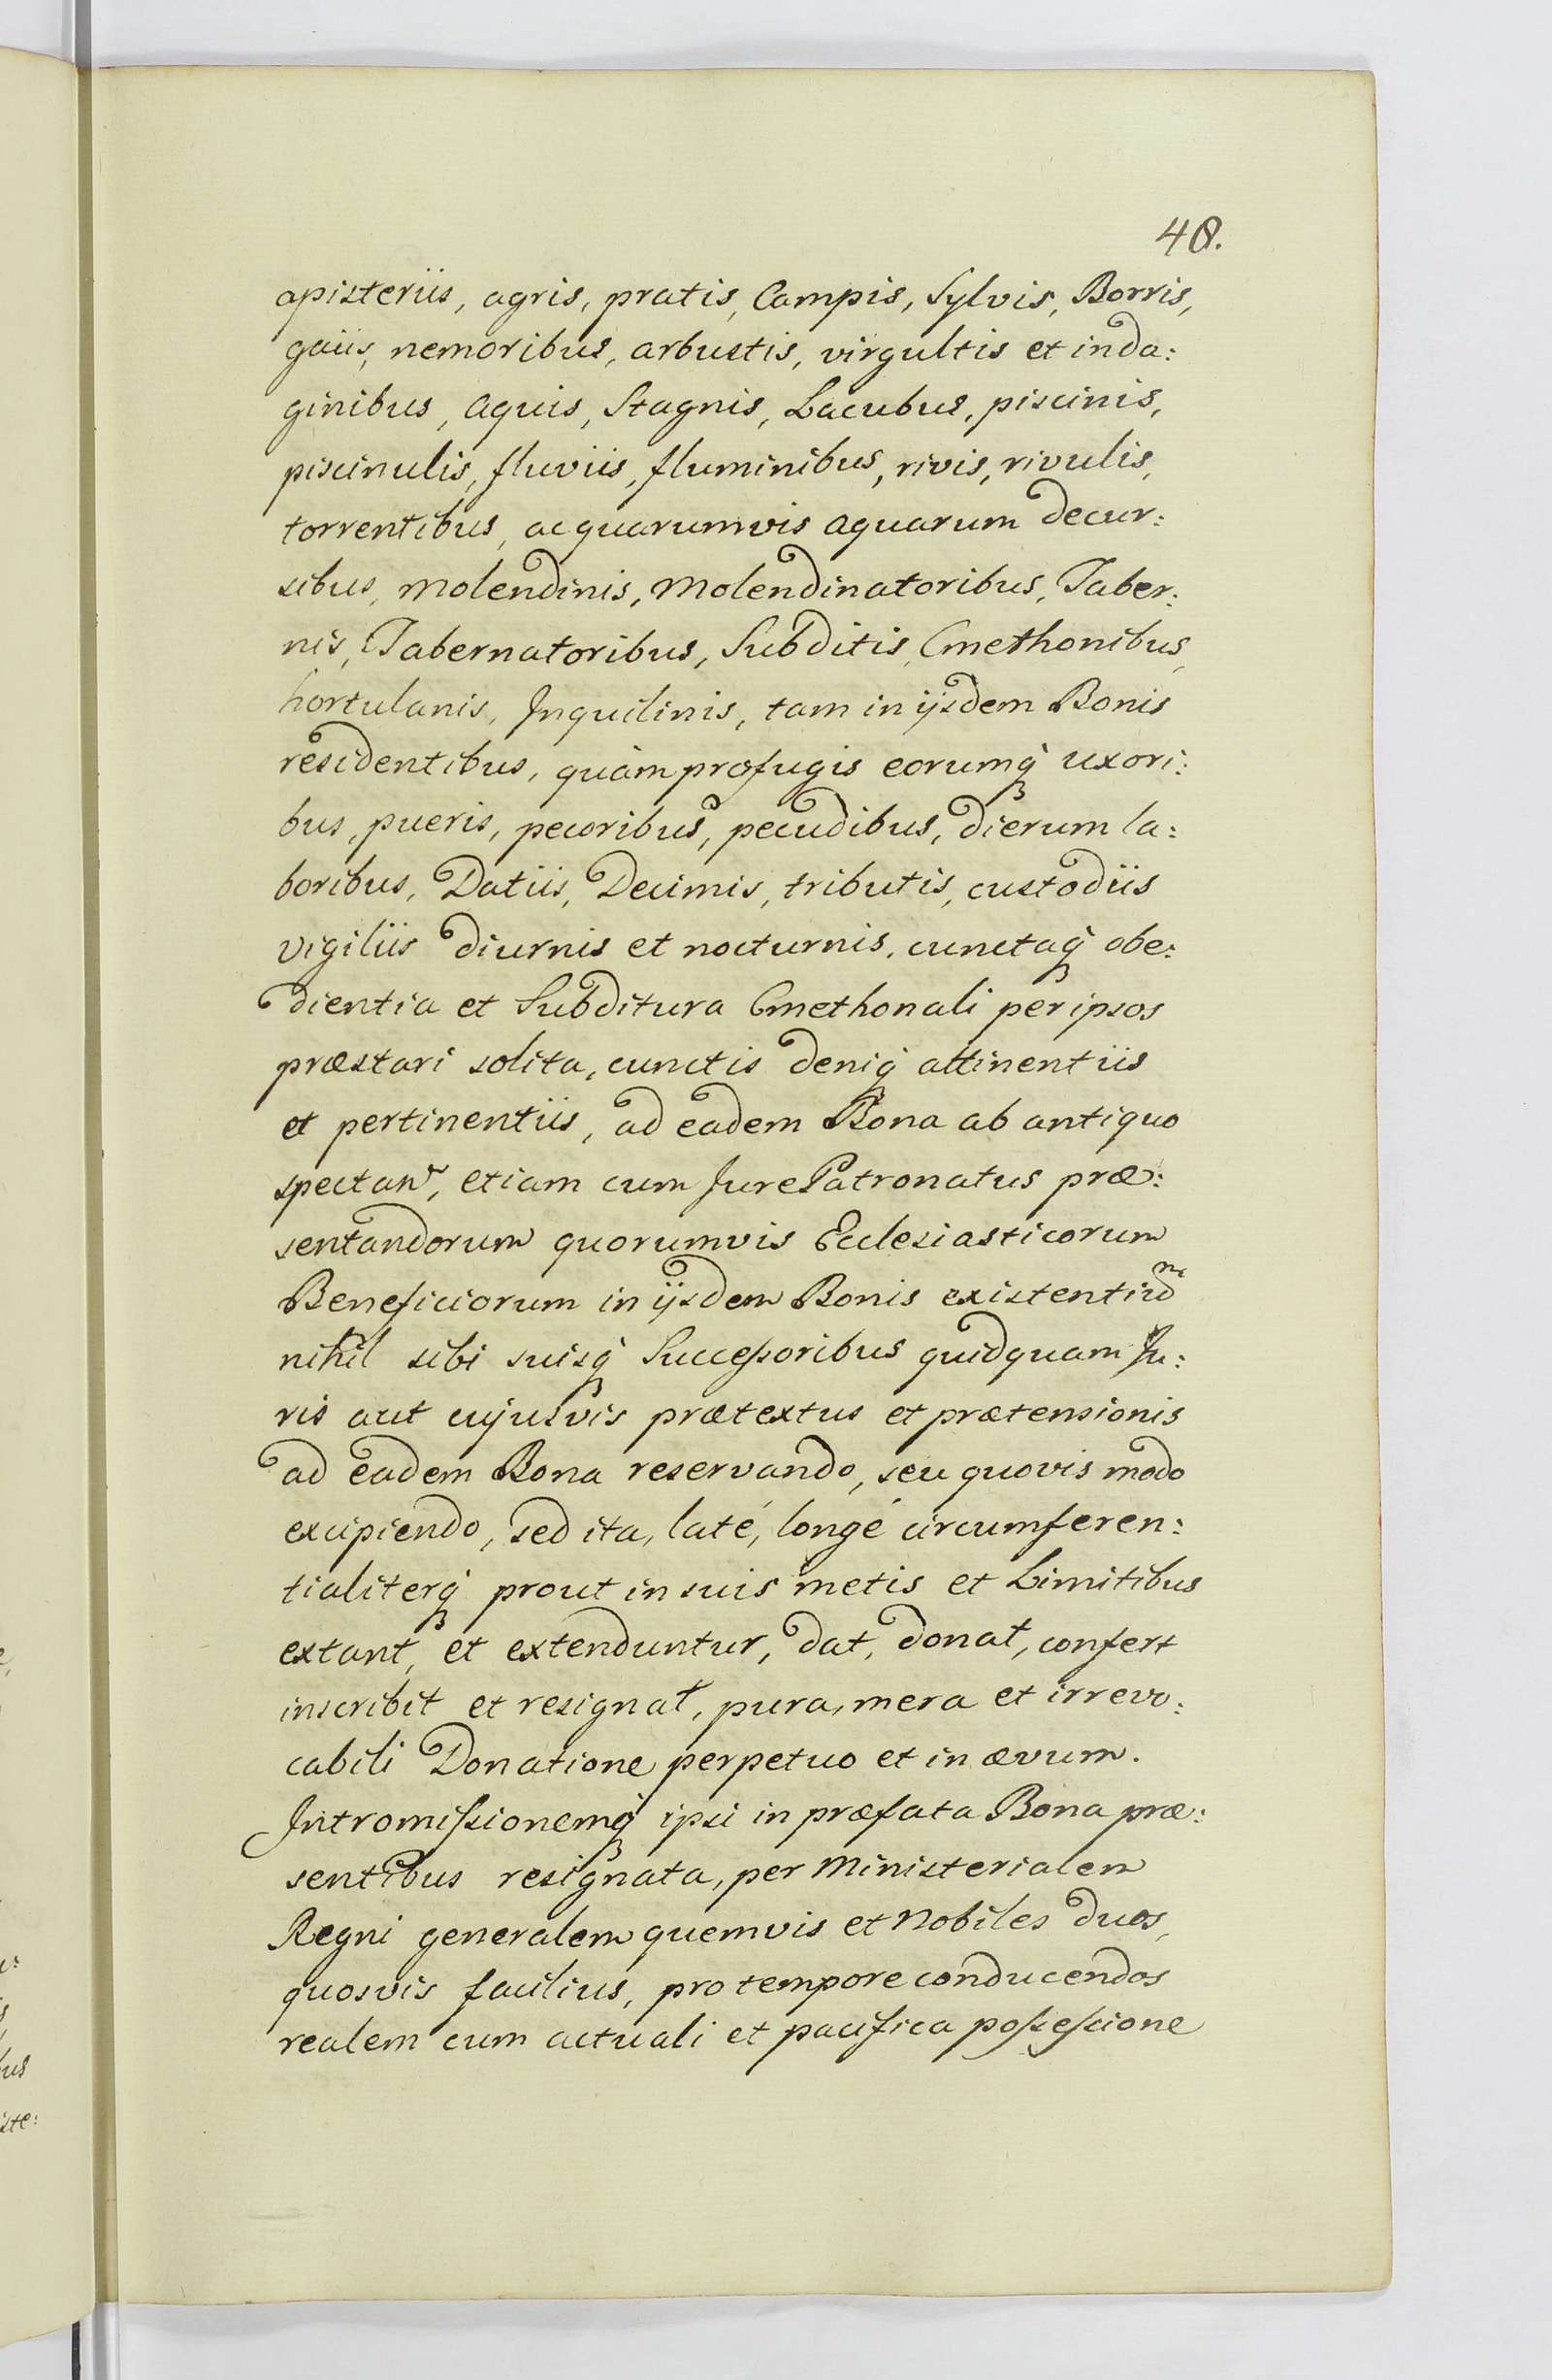 48.
apisteriis, agris, pratis, Campis, Sylvis, Borris,
gaiis, nemoribus, arbustis, virgultis et inda:
ginibus, aquis, Stagnis, Lacubus, piscinis,
piscinulis, fluviis, fluminibus, rivis, rivulis,
torrentibus, ac quarumvis aquarum decur:
sibus, Molendinis, Molendinatoribus, Taber:
nis, Tabernatoribus, Subditis, Cmethonibus,
hortulanis, Inquilinis, tam in ijsdem Bonis
residentibus, quàm profugis eorumq́ uxori:
bus, pueris, pecoribus, pecudibus, dierum la:
boribus, Datiis, Decimis, tributis, custodiis
vigiliis diurnis et nocturnis, cunctaq́ obe:
dientia et Subditura Cmethonali per ipsos
præstari solita, cunctis deniq́ attinentiis
et pertinentiis, ad eadem Bona ab antiquo
spectan, etiam cum Jure Patronatus præ:
sentandorum quorumvis Ecclesiasticorum
Beneficiorum in ijsdem Bonis existentium
nihil sibi suisq́ Successoribus quidquam Ju:
ris aut cujusvis prætextus et prætensionis
ad eadem Bona reservando, seu quovis modo
excipiendo, sed ita, laté, longé circumferen:
tialiterq́ prout in suis metis et Limitibus
extant, et extenduntur, dat, donat, confert
inscribit et resignat, pura, mera et irrevo:
cabili Donatione perpetuo et in ævum.
Intromissionemq́ ipsi in præfata Bona præ:
sentibus resignata, per Ministerialem
Regni generalem quemvis et Nobiles duos,
quosvis facilius, pro tempore conducendos
realem cum actuali et pacifica possessione